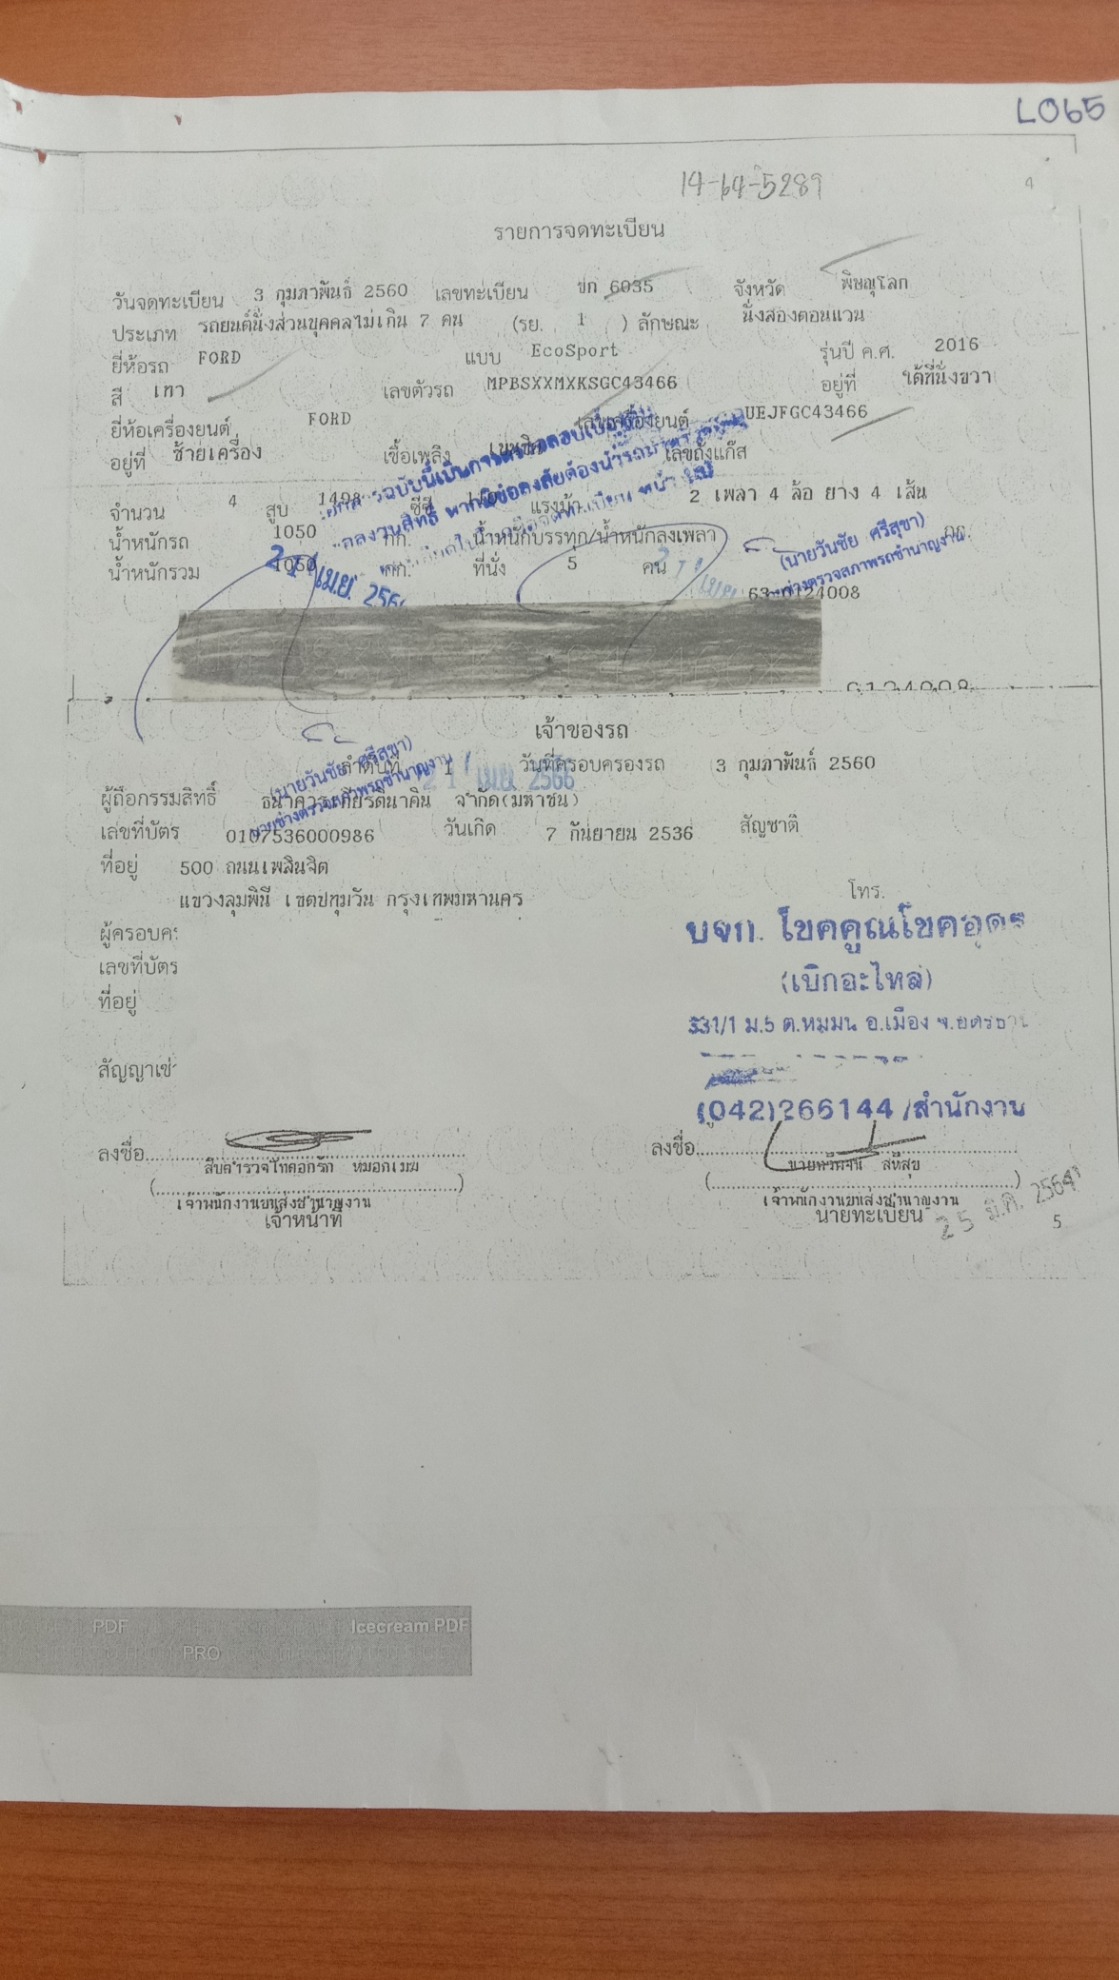 LO65
14-64-5289
รายการจดทะเบียน
วันจดทะเบียน 3 กุมภาพันธ์ 2560 เลขทะเบียน ขก 6035 จังหวัด พิษณุโลก
ประเภท รถยนต์นั่งส่วนบุคคลไม่เกิน 7 คน (รย. 1 ) ลักษณะ นั่งสองตอนแวน
ยี่ห้อรถ FORD แบบ EcoSport รุ่นปี ค.ศ. 2016
สี เทา เลขตัวรถ MPBSXXMXKSGC43466 อยู่ที่ ใต้ที่นั่งขวา
ยี่ห้อเครื่องยนต์ FORD เลขเครื่องยนต์ UEJFGC43466
อยู่ที่ ซ้ายเครื่อง เชื้อเพลิง เบนซิน เลขถังแก๊ส
จำนวน 4 สูบ 1498 ซีซี แรงม้า 2 เพลา 4 ล้อ ยาง 4 เส้น
น้ำหนักรถ 1050 กก. น้ำหนักบรรทุก/น้ำหนักลงเพลา กก.
น้ำหนักรวม 1050 กก. ที่นั่ง 5 คน
(นายวันชัย ศรีสุขา)
นายช่างตรวจสภาพรถชำนาญงาน
เจ้าของรถ
ลำดับที่ 1 วันที่ครอบครองรถ 3 กุมภาพันธ์ 2560
(นายวันชัย ศรีสุขา)
นายช่างตรวจสภาพรถชำนาญงาน
21 เม.ย. 2566
ผู้ถือกรรมสิทธิ์ ธนาคารเกียรตินาคิน จำกัด(มหาชน)
เลขที่บัตร 0107536000986 วันเกิด 7 กันยายน 2536 สัญชาติ
ที่อยู่ 500 ถนนเพลินจิต
แขวงลุมพินี เขตปทุมวัน กรุงเทพมหานคร
โทร.
ผู้ครอบค
เลขที่บัตร
ที่อยู่
สัญญาเช่
บจก. โชคคูณโชคอุดร
(เบิกอะไหล่)
331/1 ม.5 ต.หมูม่น อ.เมือง จ.อุดรธานี
(042)266144 /สำนักงาน
ลงชื่อ ลงชื่อ
สิบตำรวจโท หมอกเมฆ สหีสุข
เจ้าพนักงานขนส่งชำนาญงาน เจ้าพนักงานขนส่งชำนาญงาน
เจ้าหน้าที่ นายทะเบียน
25 มี.ค. 2564
5
PDF Icecream PDF
PRO